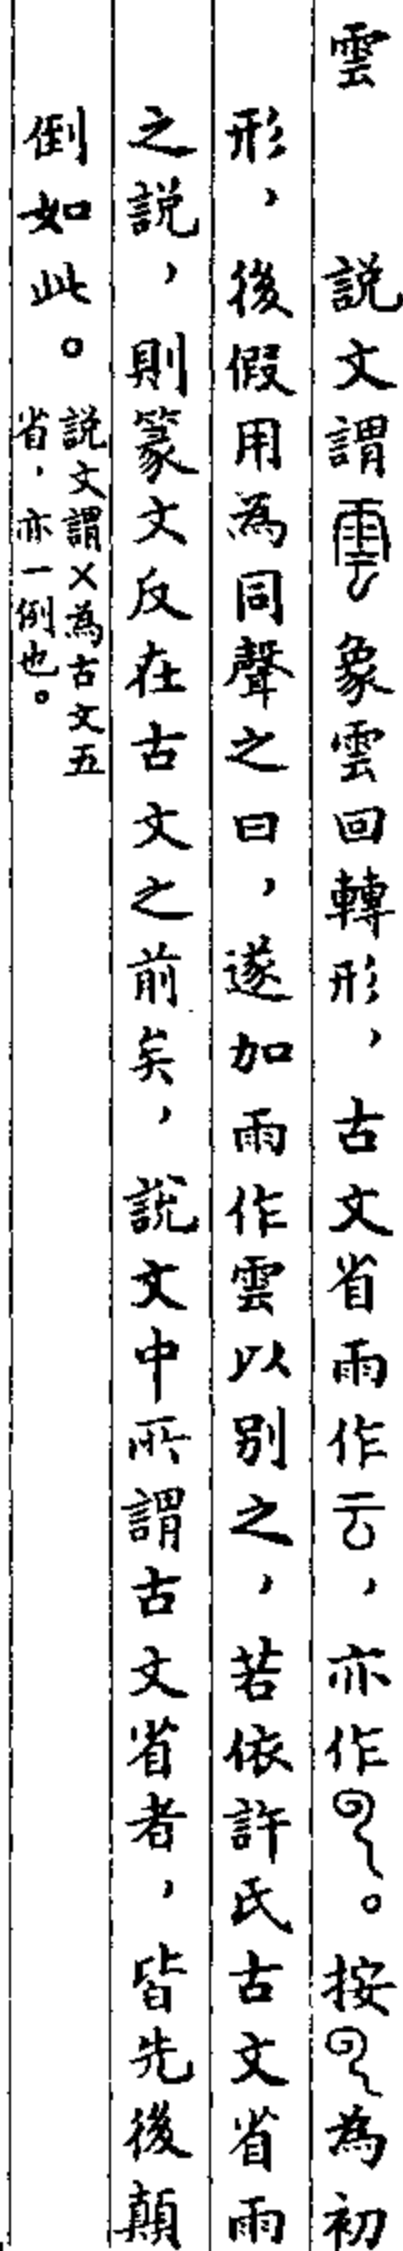 雲　說文謂雲象雲回轉形，古文省雨作云，亦作。按為初
形，後假用為同聲之曰，遂加雨作雲以別之，若依許氏古文省雨
之說，則篆文反在古文之前矣，說文中所謂古文省者，皆先後顛
倒如此。
說文謂㐅為古文五
省，亦一例也。